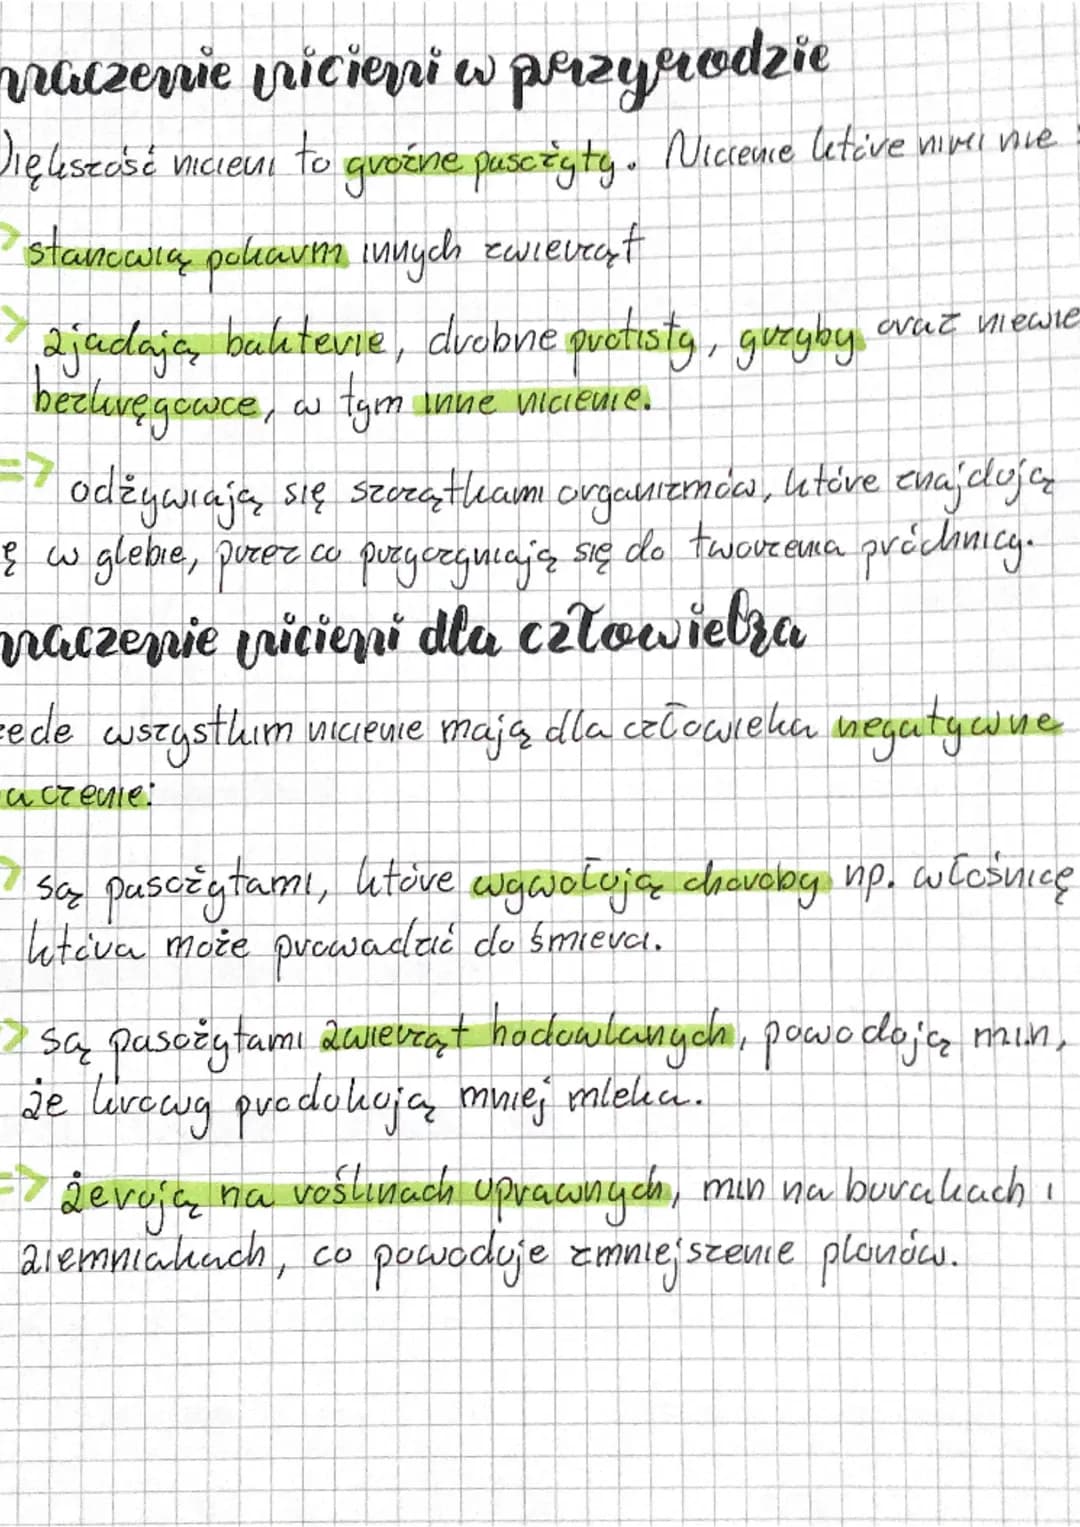 naczenie nicieni w przyrodzie
Większość nicieni to groźne pasożyty. Nicienie które nimi nie
stanowią pokarm innych zwierząt
zjadają bakterie, drobne protisty, grzyby oraz niewie
bezkręgowce, w tym inne nicienie.
=> odżywiają się szczątkami organizmów, które znajdują
ę w glebie, przez co przyczyniają się do tworzenia próchnicy.
naczenie nicieni dla człowieka
zede wszystkim nicienie mają dla człowieka negatywne
aczenie:
są pasożytami, które wywołują choroby np. włośnicę
która może prowadzić do śmierci.
są pasożytami zwierząt hodowlanych, powodują m.in,
że krowy produkują mniej mleka.
=> żerują na roślinach uprawnych, min na burakach i
ziemniakach, co powoduje zmniejszenie plonów.